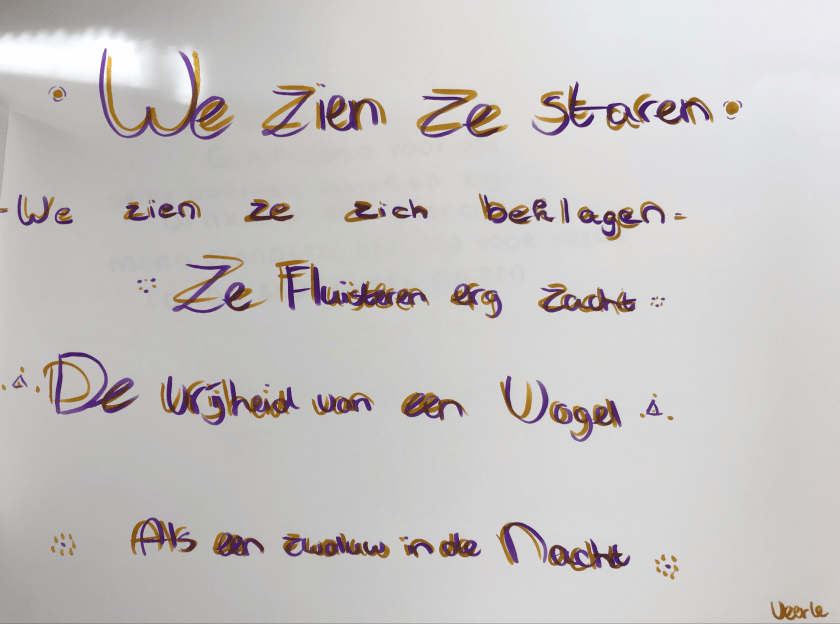 We zien ze staren
-We zien ze zich beklagen-
Ze Fluisteren erg zacht
De Vrijheid van een Vogel
Als een zwaluw in de Nacht
Veerle